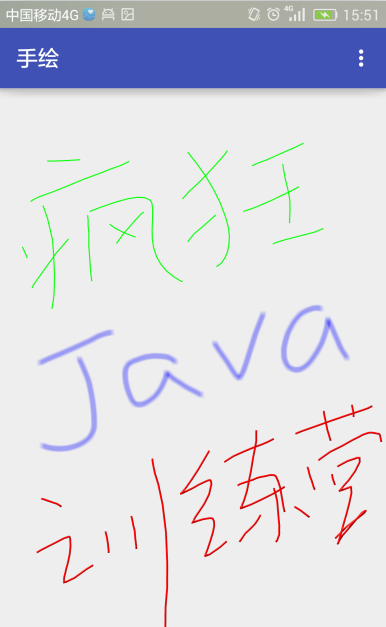 中国移动4G 4G 15:51
手绘
疯狂
Java
训练营